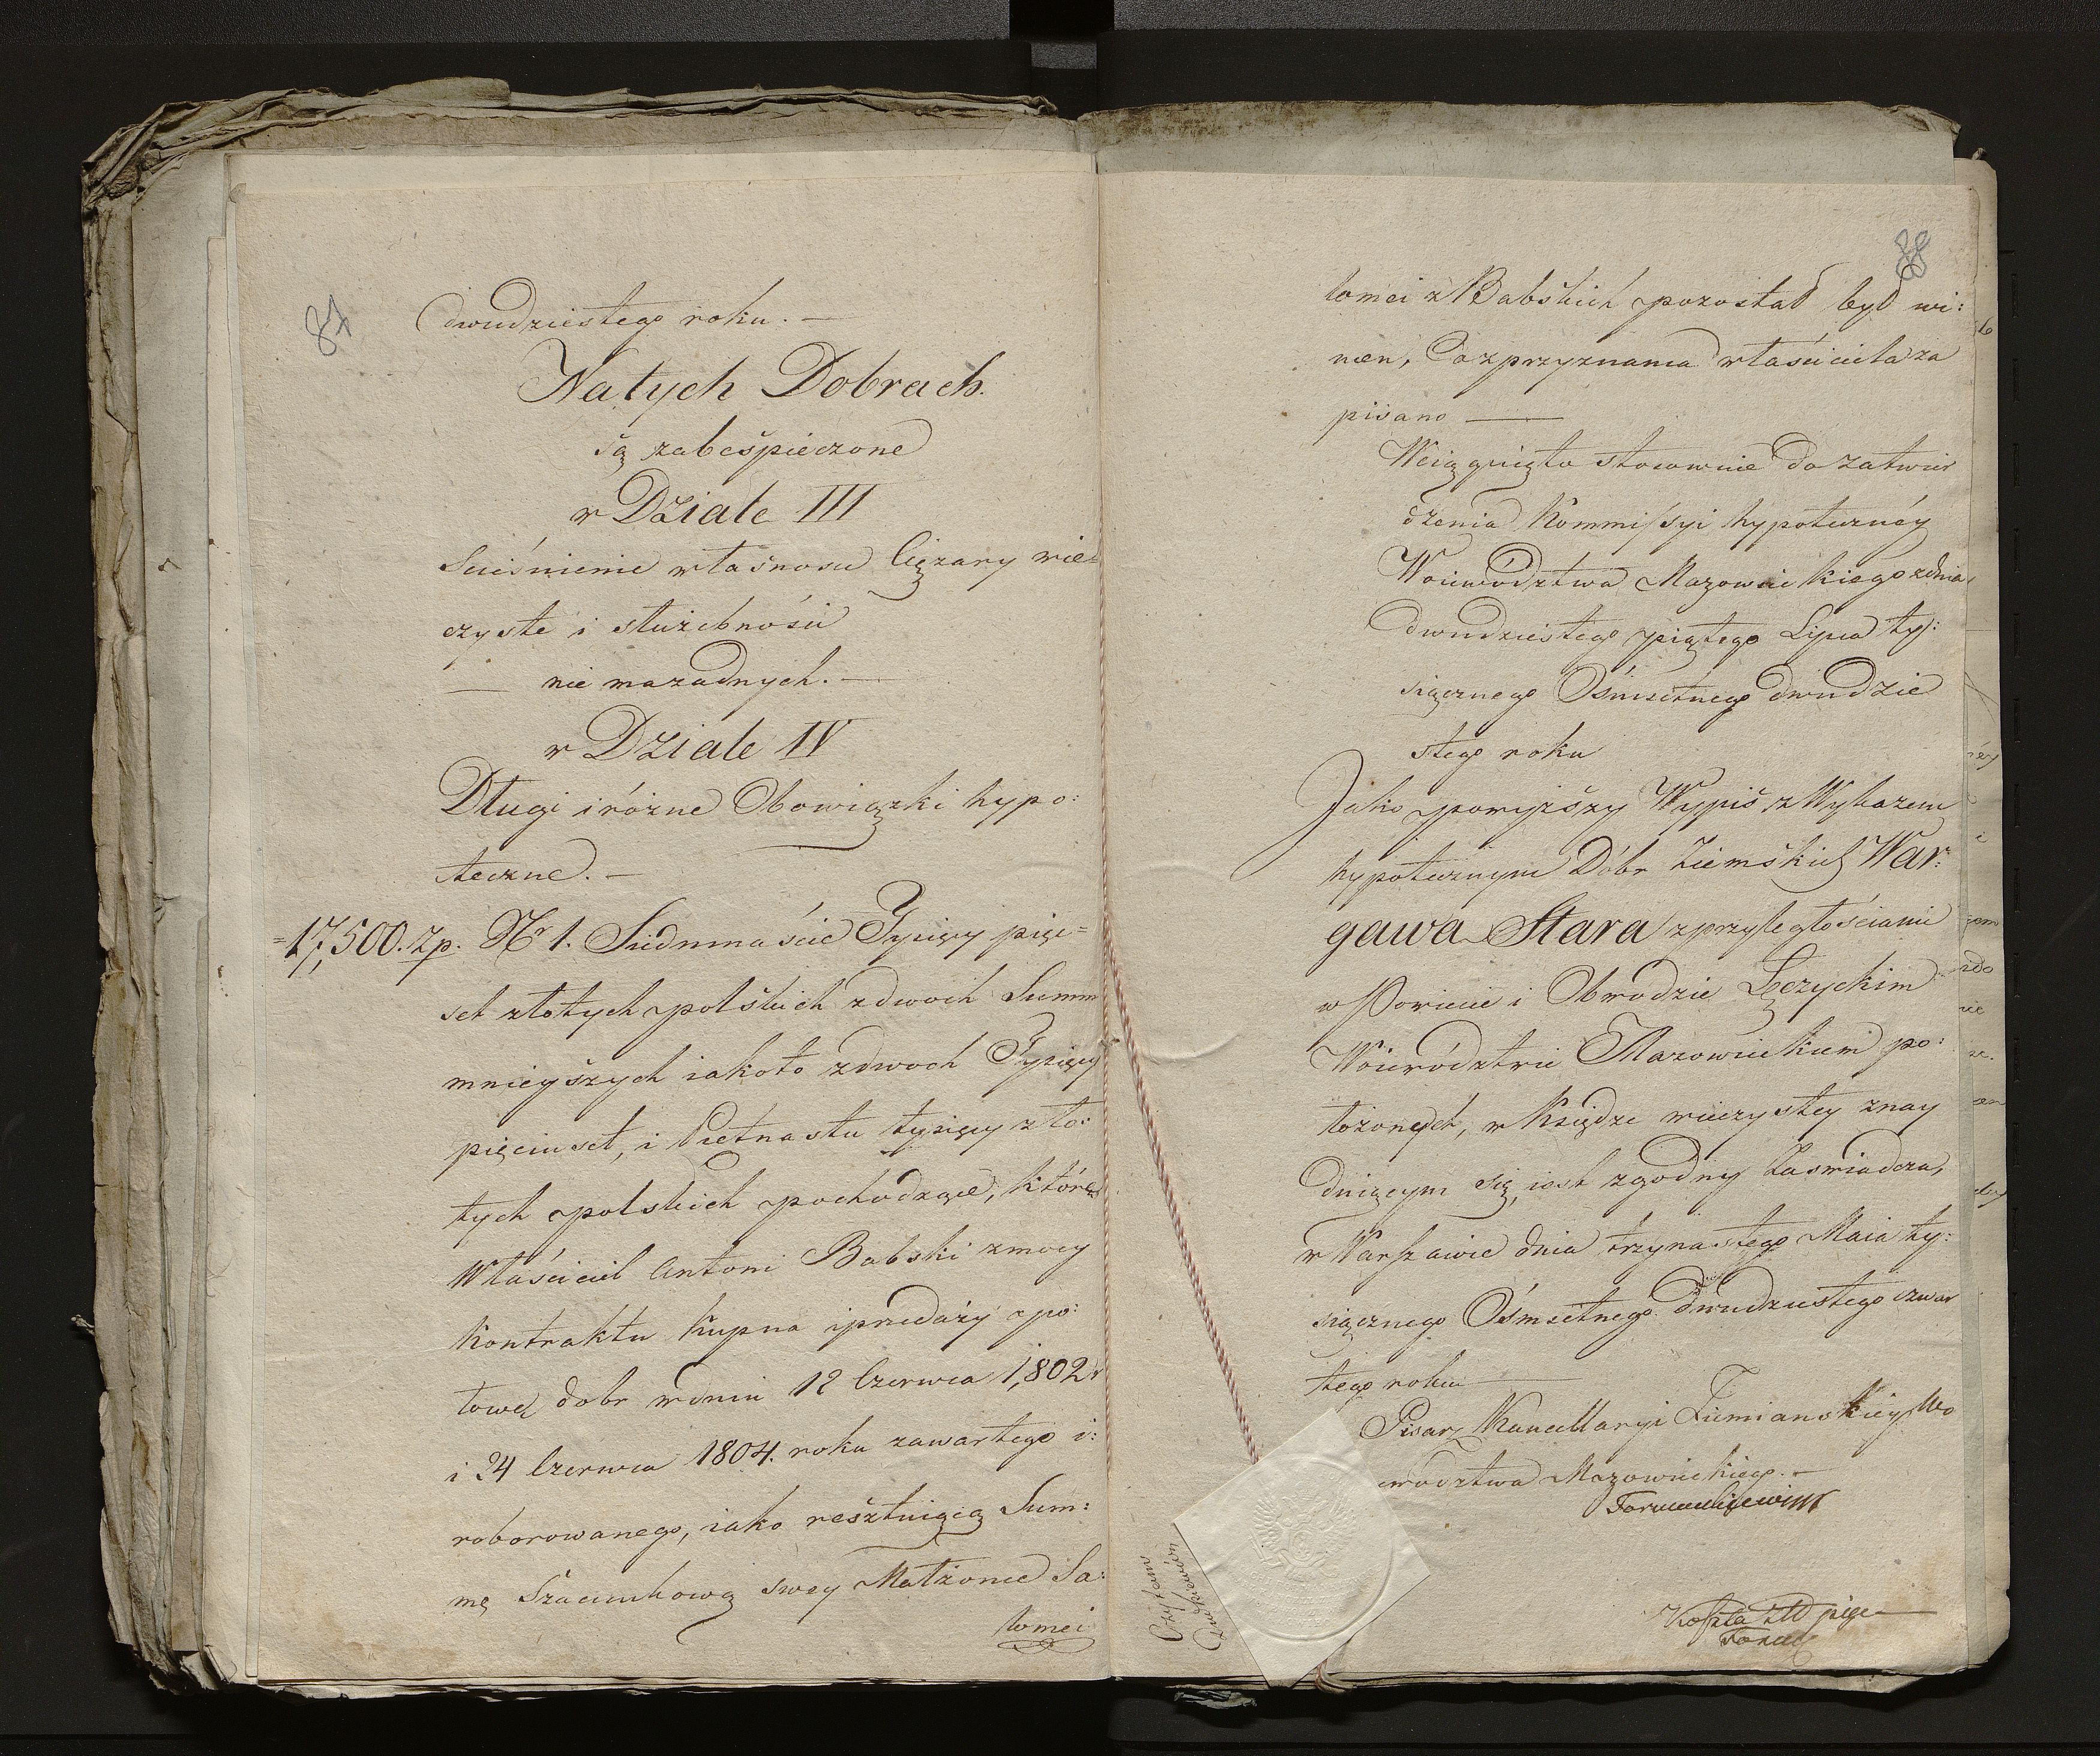 87
dwudziestego roku. —
Na tych Dobrach.
są zabespieczone
w Dziale III
Sciśnienie własnosci Ciężary wie=
czyste i służebnośći
— nie ma żadnych. —
w Dziale IV
Długi i różne Obowiązki hypo:
teczne. —
=17,500. zp. Nr 1. Siedmnaście Tysięcy pięć=
set złotych polskich z dwoch Summ
mnieyszych iakoto z dwoch Tysięcy
pięciuset, i Pietnastu tysięcy zło:
tych polskich pochodzące, które
Właściciel Antoni Babski z mocy
Kontraktu Kupna i przedaży po:
łowę dobr w dniu 12 Czerwca 1,802 r
i 24 Czerwca 1804. roku zawartego i:
roborowanego, iako resztuiącą Sum:
mę Szacunkową swey Małżonce Sa:
lomei
88
lomei z Babskich pozostał był wi:
nien, Co z przyznania właściciela za
pisano —
Wciągnięto stosownie do zatwier
dzenia Kommissyi hypoteczney
Woiewództwa Mazowieckiego z dnia
dwudziestego piątego Lipca ty:
siącznego Ośmsetnego dwudzie
stego roku
Jako powyższy Wypis z Wykazem
hypotecznym Dóbr Ziemskich War:
gawa Stara z przyległościami
w Powiecie i Obwodzie Łęczyckim
Woiewództwie Mazowieckiem po:
łożonych, w Księdze wieczystey znay
duiącym się, iest zgodny Zaswiadcza,
w Warszawie dnia trzynastego Maia ty:
siącznego Ośmsetnego dwudziestego czwar
tego roku —
Pisarz Kancellaryi Ziemianskiey Wo
iewodztwa Mazowieckiego. —
Czytam